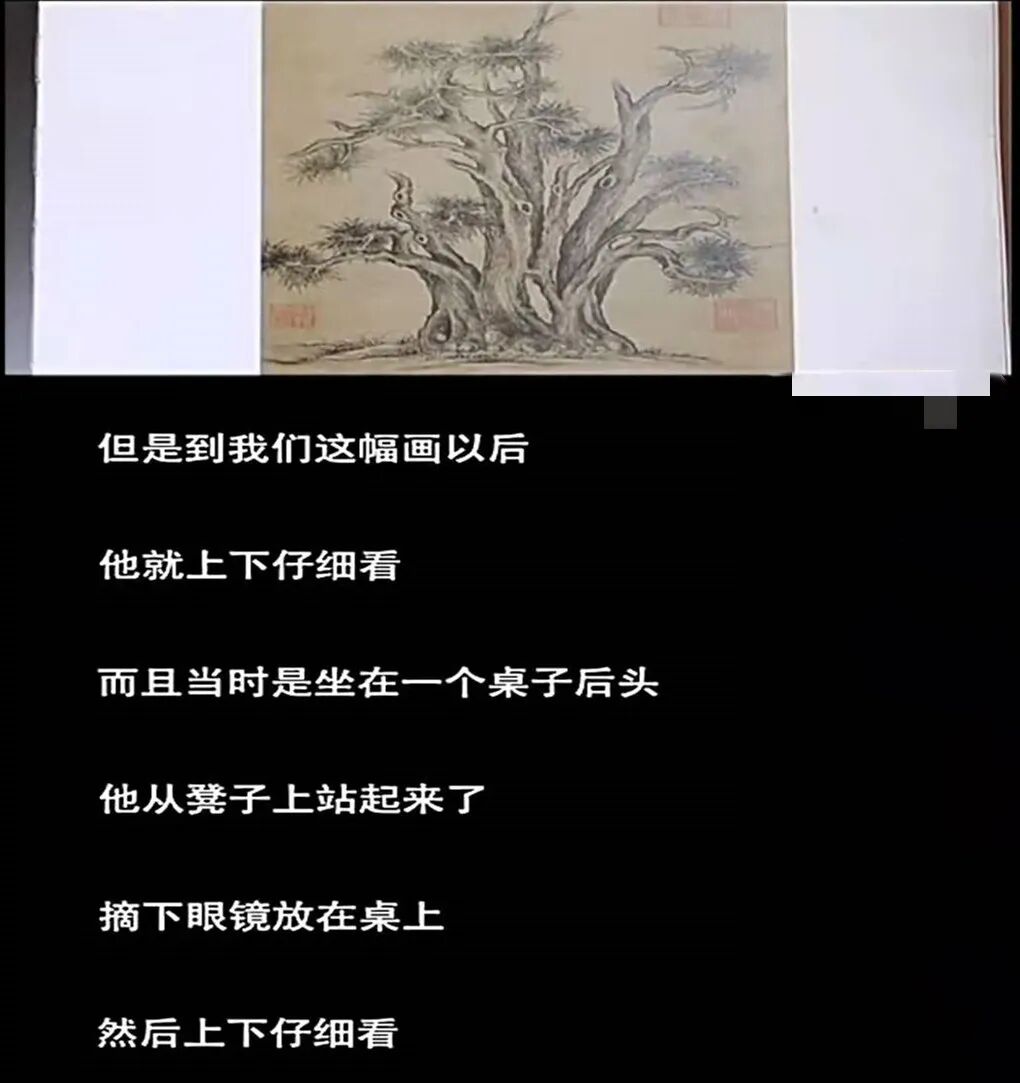 但是到我们这幅画以后
他就上下仔细看
而且当时是坐在一个桌子后头
他从凳子上站起来了
摘下眼镜放在桌上
然后上下仔细看